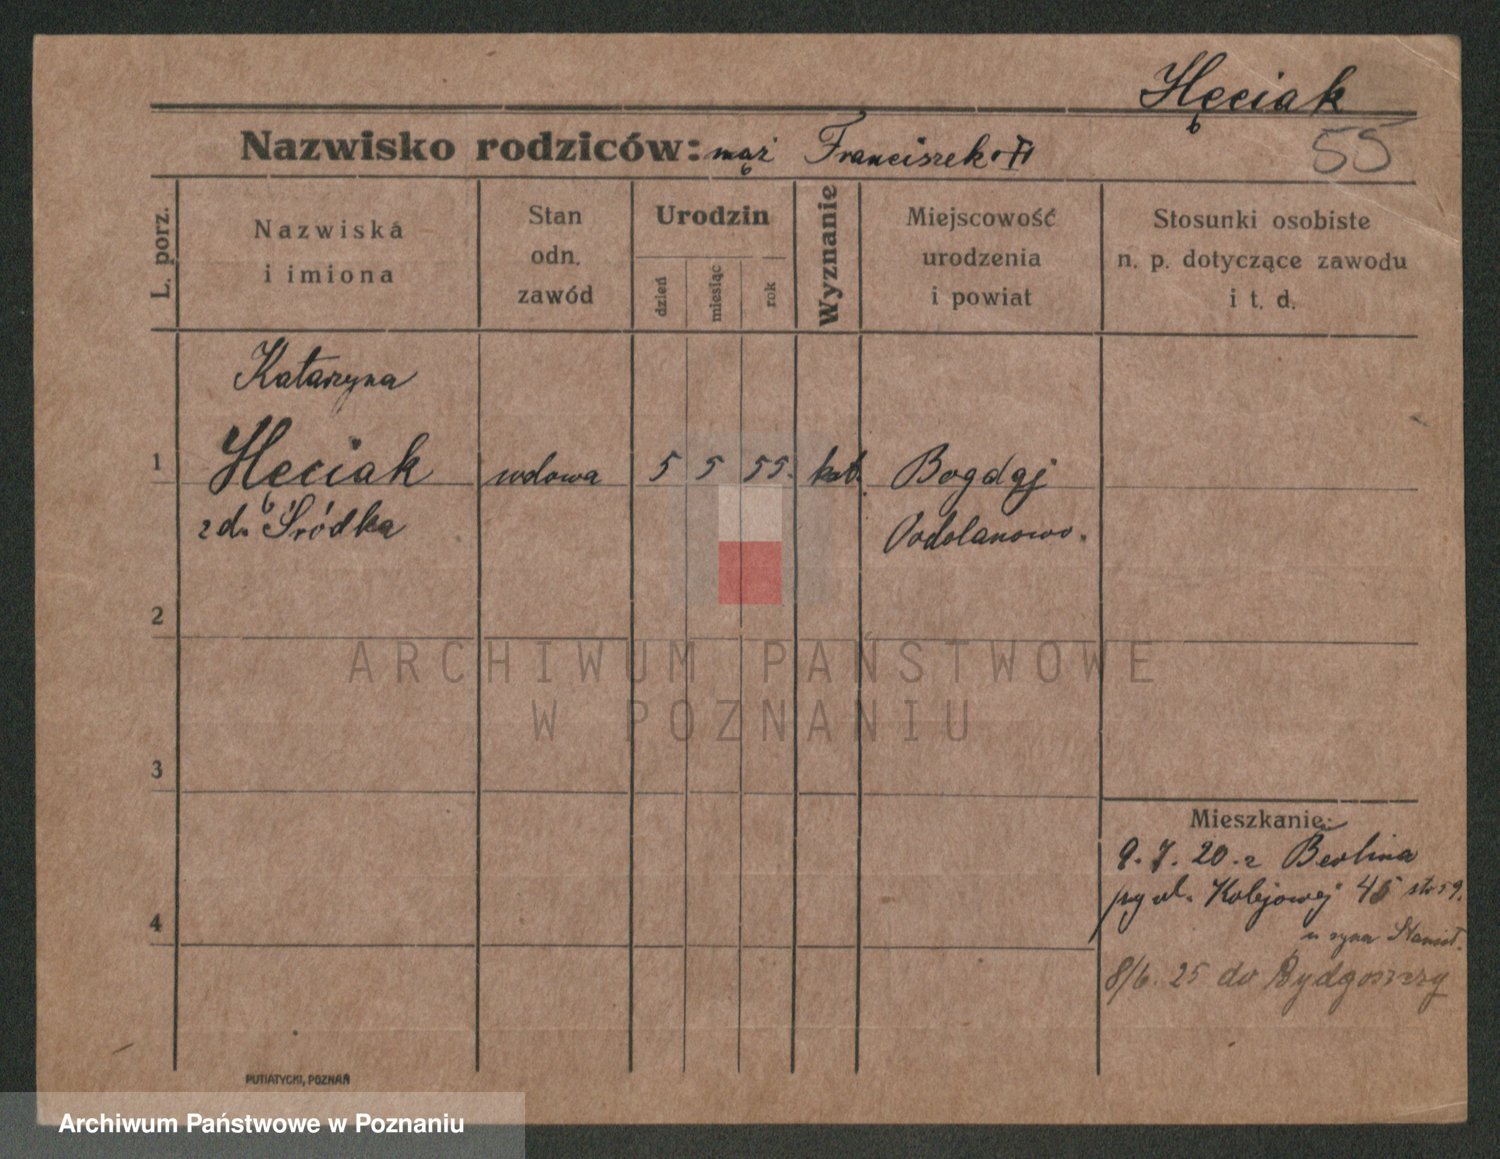 Hęciak
55
Nazwisko rodziców: mąż Franciszek
L. porz.
Nazwiska
i imiona
Stan
odn.
zawód
Urodzin
dzień
miesiąc
rok
Wyznanie
Miejscowość
urodzenia
i powiat
Stosunki osobiste
n. p. dotyczące zawodu
i t. d.
Katarzyna
1 Hęciak wdowa 5 5 55. kat. Bogdaj
z d. Śródka Odolanowo.
2
ARCHIWUM PAŃSTWOWE
W POZNANIU
3
Mieszkanie:
9.7.20. z Berlina
py ul. Kolejowej 45 str 59.
u syna Stanisł.
4
8/6. 25 do Bydgoszczy
PUTIATYCKI, POZNAŃ
Archiwum Państwowe w Poznaniu